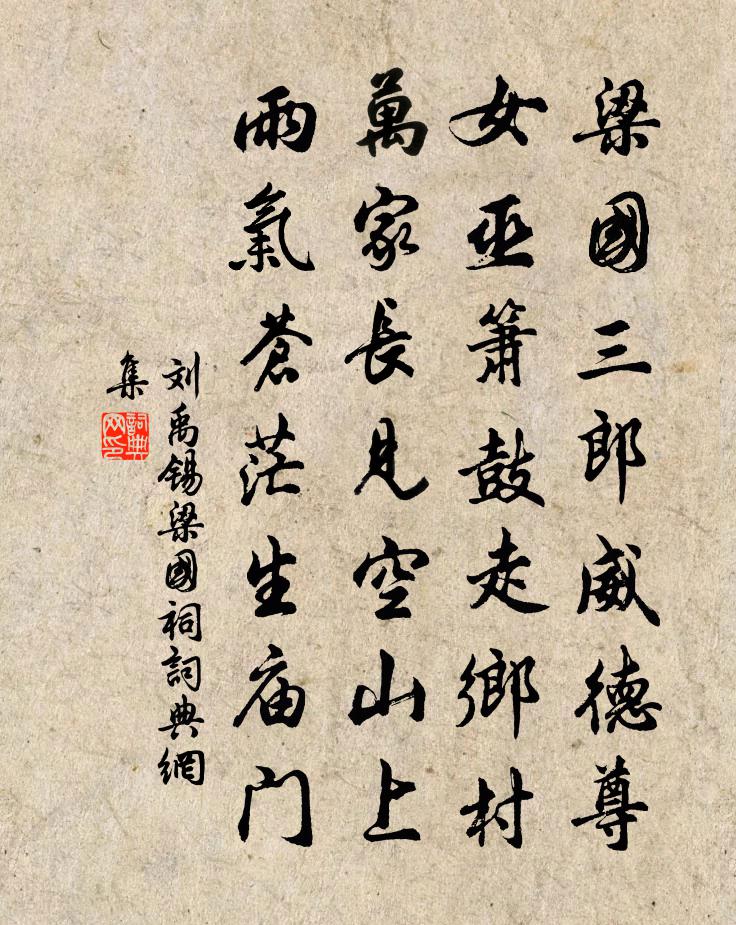 梁國三郎威德尊
女巫簫鼓走鄉村
萬家長見空山上
雨氣蒼茫生庙门
刘禹锡梁國祠詞典網
集
詞典
网印